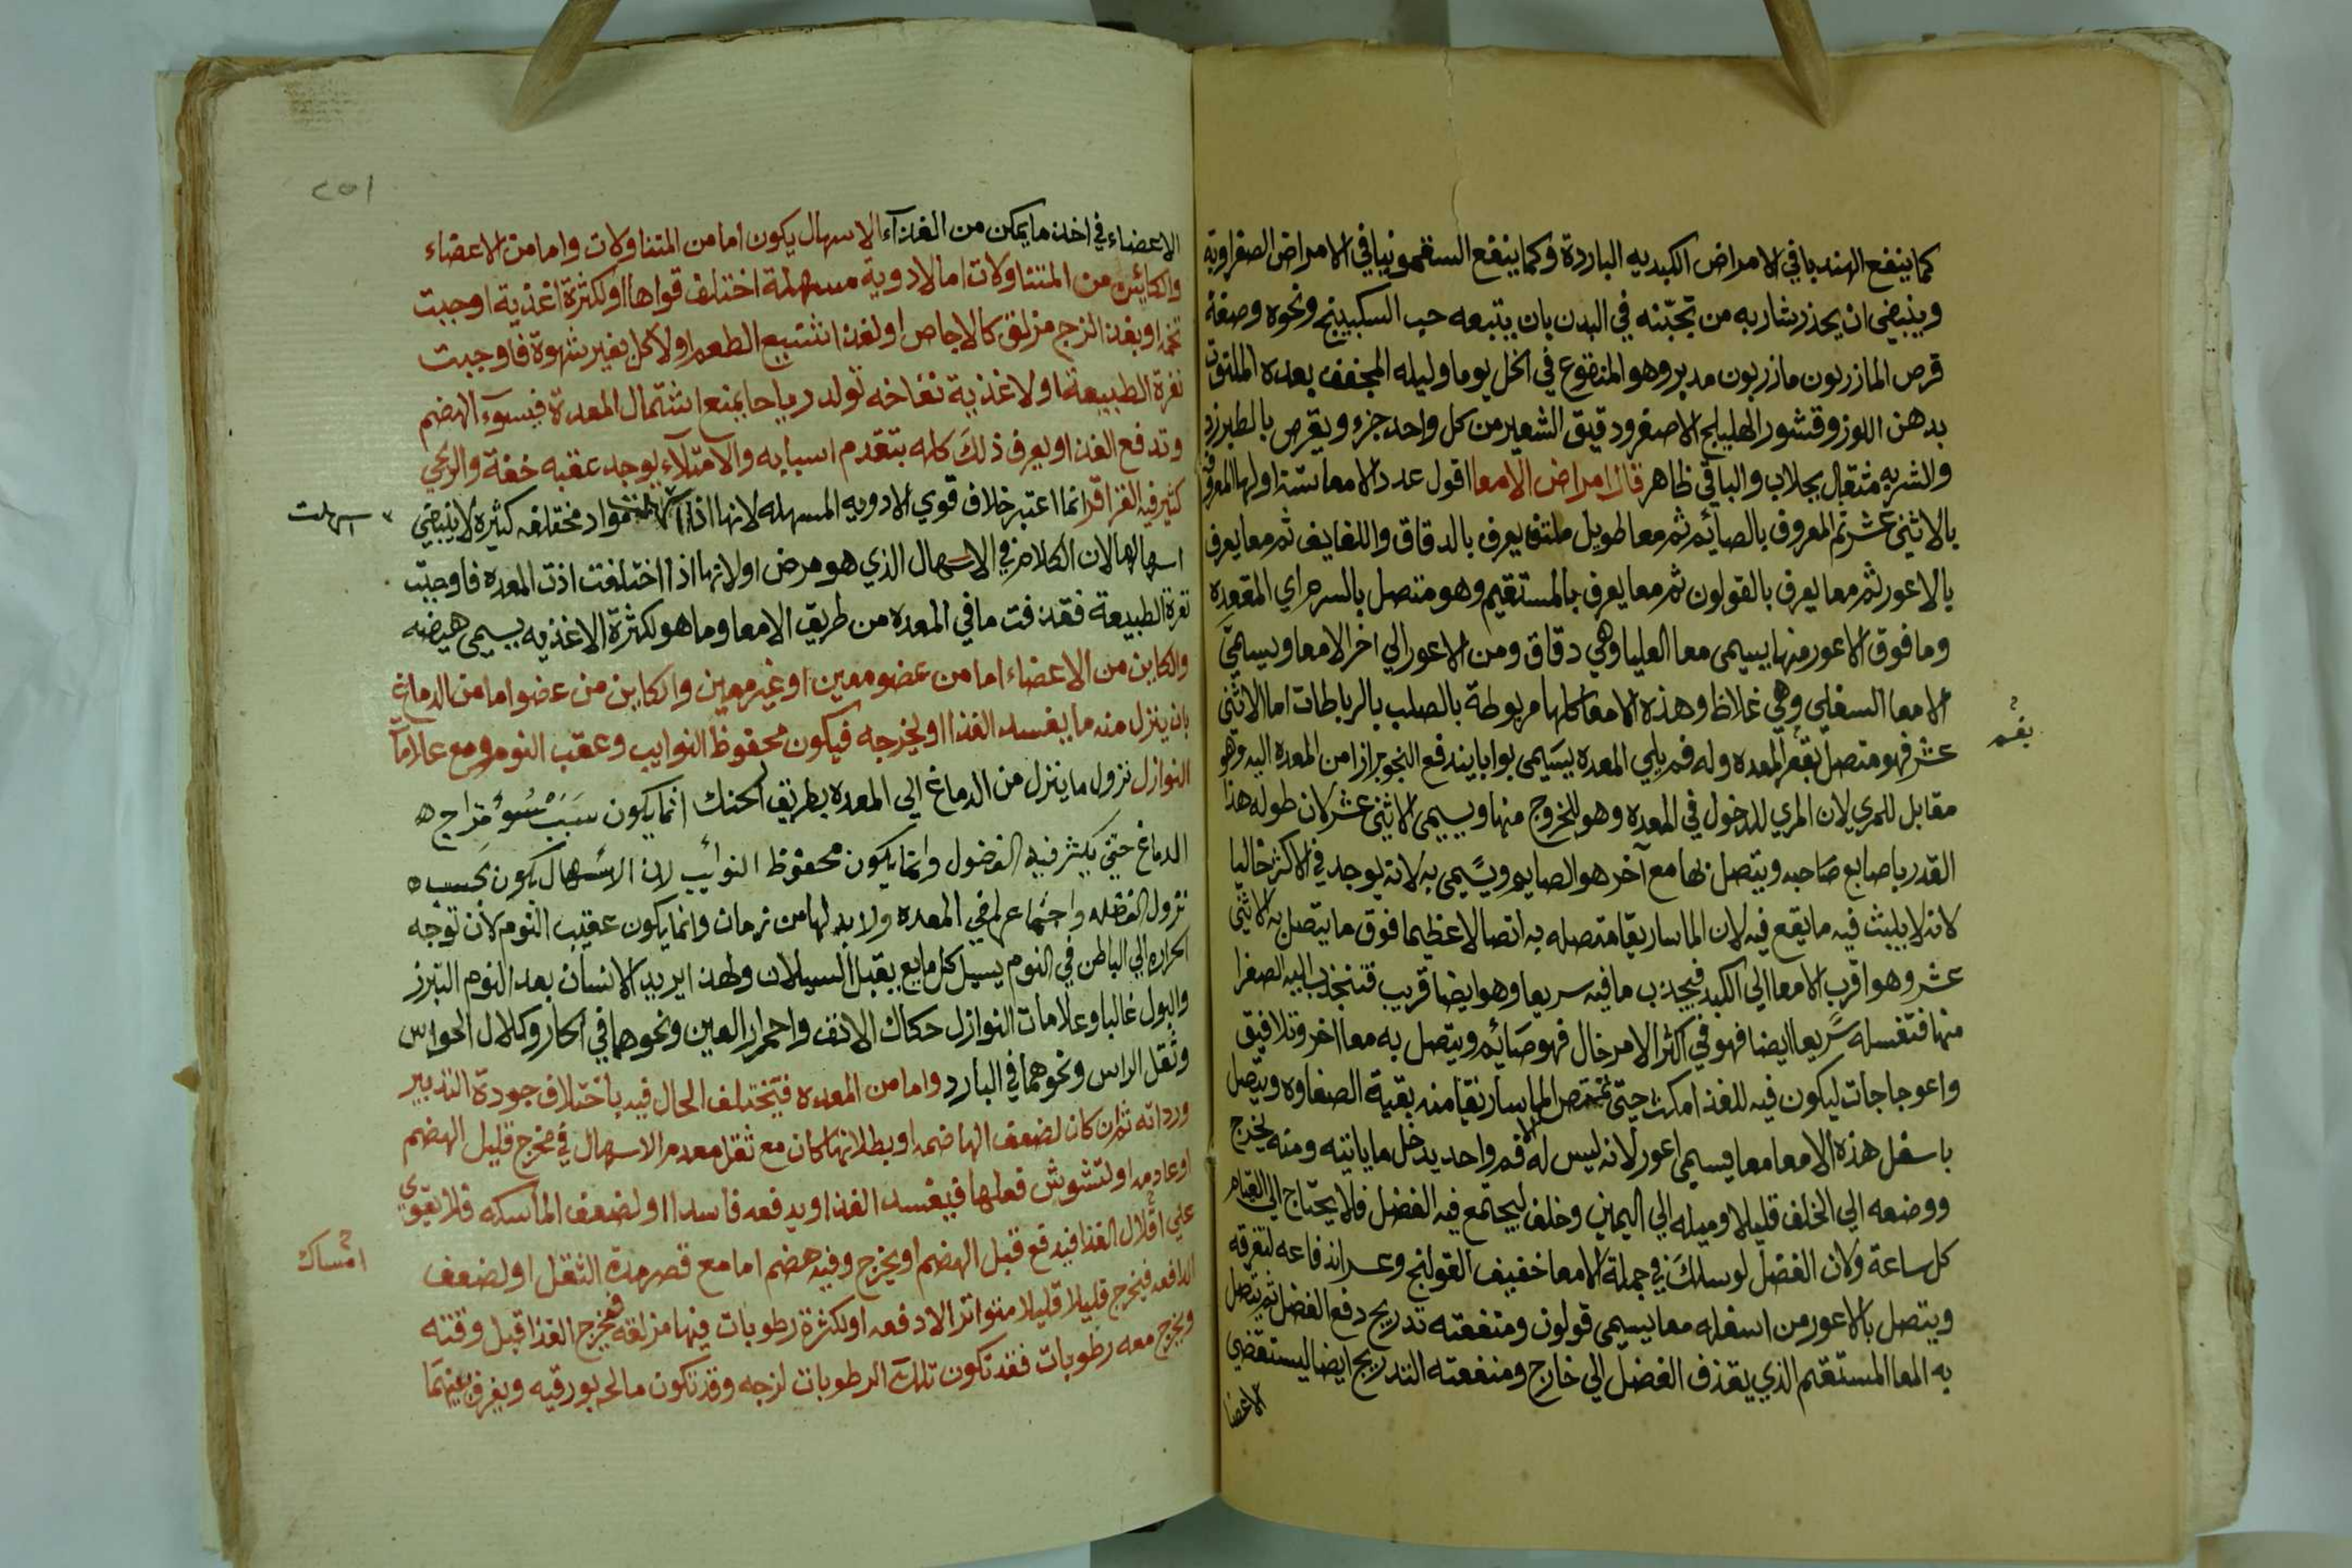 كما ينفع الهندبا في الامراض الكبديه الباردة وكما ينفع السقمونيا في الامراض الصفراويه
وينبغي ان يحذر شاربه من تجبّنه في البدن بان يتبعه حب السكبينج ونحوه وصفة
قرص المازريون مازريون مدبر وهو المنقوع في الخل يوما وليله المجفف بعده الملتوت
بدهن اللوز وقشور الهليلج الاصفر ودقيق الشعير من كل واحد جزء ويقرص بالطبرزد
والشربه مثقال بجلاب والباقي ظاهر قال امراض الامعا اقول عدد الامعا ستة اولها المعروف
بالاثني عشر ثم المعروف بالصائم ثم معا طويل ملتف يعرف بالدقاق واللفايف ثم معا يعرف
بالاعور ثم معا يعرف بالقولون ثم معا يعرف بالمستقيم وهو متصل بالسرم اي المقعده
وما فوق الاعور منها يسمي معا العليا وهي دقاق ومن الاعور الي اخر الامعا ويسمي
الامعا السفلي وهي غلاظ وهذه الامعا كلها مربوطة بالصلب بالرباطات اما الاثني
عشر فهو متصل بقعر المعده وله فم يلي المعده يسَيمى بوابا يندفع النجو برازا من المعده اليه وهو
مقابل للمري لان المري للدخول في المعده وهو للخروج منها ويسمى الاثني عشر لان طوله هذا
القدر باصابع صاحبه ويتصل بها مع آخر هو الصايم ويسمى به لانه يوجد في الاكثر خاليا
لانه لا يلبث فيه ما يقع فيه لان الماساريقا متصله به اتصالا عظيما فوق ما يتصل به الاثني
عشر وهو اقرب الامعا الي الكبد فيجذب ما فيه سريعا وهو ايضا قريب فتنجذب اليه الصفرا
منها فتغسله سريعا ايضا فهو في اكثر الامر خال فهو صائم ويتصل به معا اخر وتلافيق
واعوجاجات ليكون فيه للغذا مكث حتي تمتص الماساريقا منه بقية الصفاوه ويتصل
باسفل هذه الامعا معا يسمي اعور لانه ليس له الا فم واحد يدخل ما ياتيه ومنه يخرج
ووضعه الي الخلف قليلا وميله الي اليمين وخلف ليجتمع فيه الفضل فلا يحتاج الي القيام
كل ساعة ولان الفضل لو سلك في جملة الامعا خفيف القولنج وعسر اندفاعه لتفرقه
ويتصل بالاعور من اسفله معا يسمي قولون ومنفعته تدريج دفع الفضل ثم يتصل
به المعا المستقيم الذي يقذف الفضل الي خارج ومنفعته التدريج ايضا ليستقضي
الاعضا
بقعر
٢٥١
الاعضاء في اخذ ما يمكن من الغذاء الاسهال يكون اما من المتناولات واما من الاعضاء
والكائن من المتناولات اما لادوية مسهلة اختلف قواها او لكثرة اغذية اوجبت
تخمه او بغذا لزج مزلق كالاجاص او لغذا شنيع الطعم او لاكل بغير شهوة فاوجبت
نفرة الطبيعة او لاغذية نفاخه تولد رياحا يمنع اشتمال المعدة فيسوء الهضم
وتدفع الغذا ويعرف ذلك كله بتقدم اسبابه والامتلاء يوجد عقبه خفة والريحي
كثير فيه القراقر انما اعتبر خلاف قوي الادويه المسهله لانها اذا مواد مختلفه كثيره لا ينبغي
اسهلت
اسهالها لان الكلام في الاسهال الذي هو مرض اولانها اذا اختلفت اذت المعده فاوجبت
نفرة الطبيعة فقذفت ما في المعده من طريق الامعا وما هو لكثرة الاغذيه يسمى هيضه
والكاين من الاعضاء اما من عضو معين او غير معين والكاين من عضو اما من الدماغ
بان ينزل منه ما يفسد الغذا او يخرجه فيكون محفوظ النوايب وعقب النوم ومع علامآ
النوازل نزول ما ينزل من الدماغ الي المعده بطريق الحنك انما يكون سبب سوء مزاج
الدماغ حتي يكثر فيه الفضول وانما يكون محفوظ النوائب لان الاسهال يكون بحسب
نزول الفضله واجتماعها في المعده ولا بد لها من زمان وانما يكون عقيب النوم لان توجه
الحراره الي الباطن في النوم يسيل كل مايع يقبل السيلان ولهذا يريد الانسان بعد النوم التبرز
والبول غالبا وعلامات النوازل حكاك الانف واحمرار العين ونحوهما في الحار وكلال الحواس
وثقل الراس ونحوهما في البارد واما من المعده فيختلف الحال فيه باختلاف جودة التدبير
ورداته ثم ان كان لضعف الهاضمه او بطلانها كان مع ثقل معدم الاسهال في مخرج قليل الهضم
او عادمه او لتشوش فعلها فيفسد الغذا ويدفعه فاسدا او لضعف الماسكه فلا تقوي
علي اقلال الغذا فيدفع قبل الهضم او يخرج وفيه هضم اما مع قصر مدة الثقل او لضعف
امساك
الدافعه فيخرج قليلا قليلا متواترا لا دفعه او لكثرة رطوبات فيها مزلقه فيخرج الغذا قبل وقته
ويخرج معه رطوبات فقد تكون تلك الرطوبات لزجه وقد تكون مالحه بورقيه ويفرق بينهما